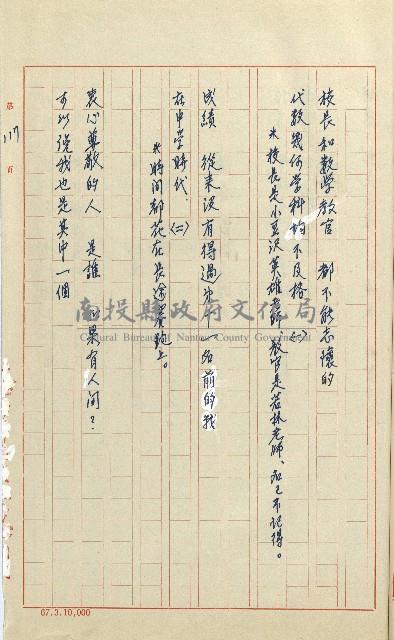 校長和數学教官 都不能忘懷的
代數幾何学科均不及格(一)
※校長是小豆沢英雄老師、教官是若林老師、和已不記得。
成績 從来沒有得過 名前的我
在中学時代．(二)
※時間都花在長途 跑上。
衷心尊敬的人 是誰 如果有人问？
可以說我也是其中一個
第 117 頁
南投縣政府文化局
Cultural Bureau of Nantou County Government
67.3.10,000